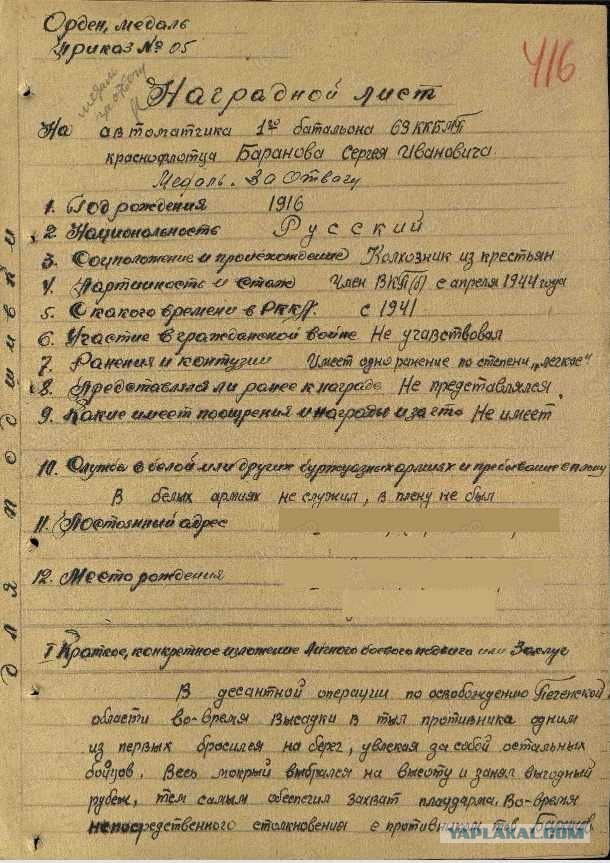 Орден, медаль
Приказ № 05
416
медаль
за отвагу
Наградной лист
На автоматчика 1го батальона 69 ККБМП
краснофлотца Баранова Сергея Ивановича
Медаль. За Отвагу
1. Год рождения 1916
2. Национальность Русский
3. Соцположение и происхождение Колхозник из крестьян
4. Партийность и стаж Член ВКП(б) с апреля 1944 года
5. С какого времени в РККА с 1941
6. Участие в гражданской войне Не учавствовал
7. Ранения и контузии Имеет одно ранение по степени „легкое“
8. Представлялся ли ранее к награде Не представлялся
9. Какие имеет поощрения и награды и за что Не имеет
10. Служба в белой или других буржуазных армиях и пребывание в плену
В белых армиях не служил, в плену не был
11. Постоянный адрес
12. Место рождения
I Краткое, конкретное изложение личного боевого подвига или Заслуг
В десантной операции по освобождению Печенской
области во-время высадки в тыл противника одним
из первых бросился на берег, увлекая за собой остальных
бойцов. Весь мокрый выбрался на высоту и занял выгодный
рубеж, тем самым обеспечил захват плацдарма. Во-время
непосредственного столкновения с противником тов Баранов
Для подшивки
YAPLAKAL.COM